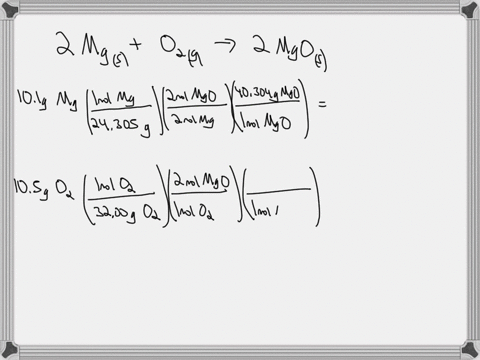 2 Mg(s) + O2(g) → 2 MgO(s)
10.1g Mg (1mol Mg / 24.305 g)(2mol MgO / 2mol Mg)(40.304g MgO / 1mol MgO) =
10.5g O2 (1mol O2 / 32.00g O2)(2mol MgO / 1mol O2)( / 1mol